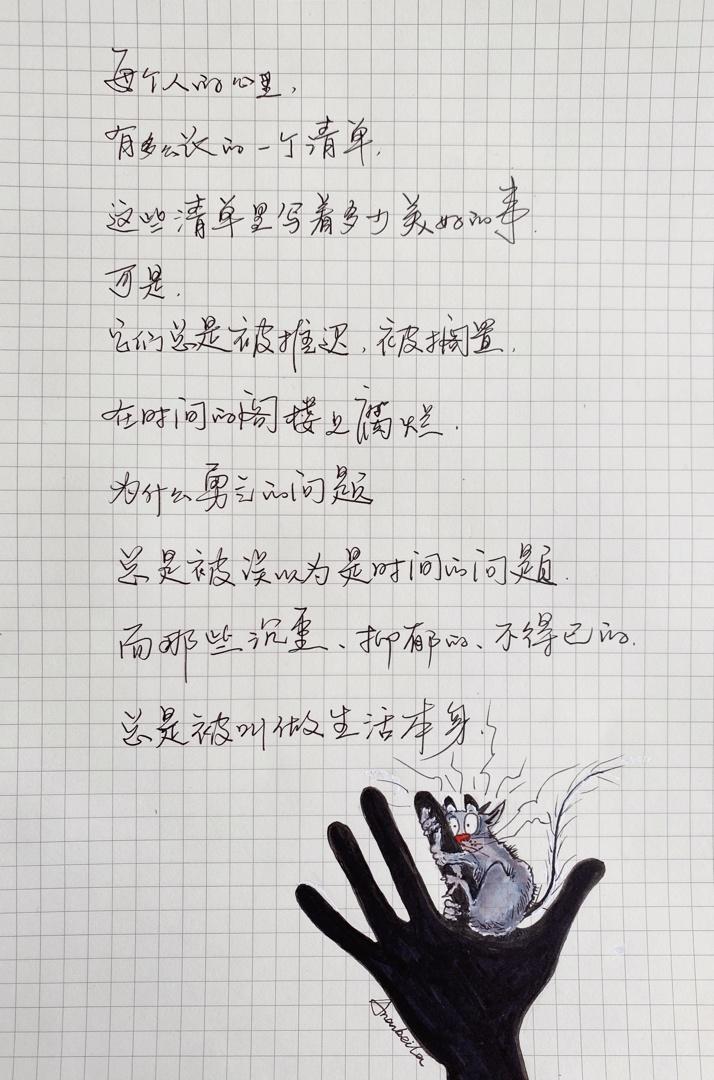 每个人的心里,
有多么长的一个清单,
这些清单里写着多少美好的事.
可是.
它们总是被推迟,被搁置,
在时间的阁楼上腐烂.
为什么勇气的问题
总是被误以为是时间的问题.
而那些沉重、抑郁的、不得已的.
总是被叫做生活本身.